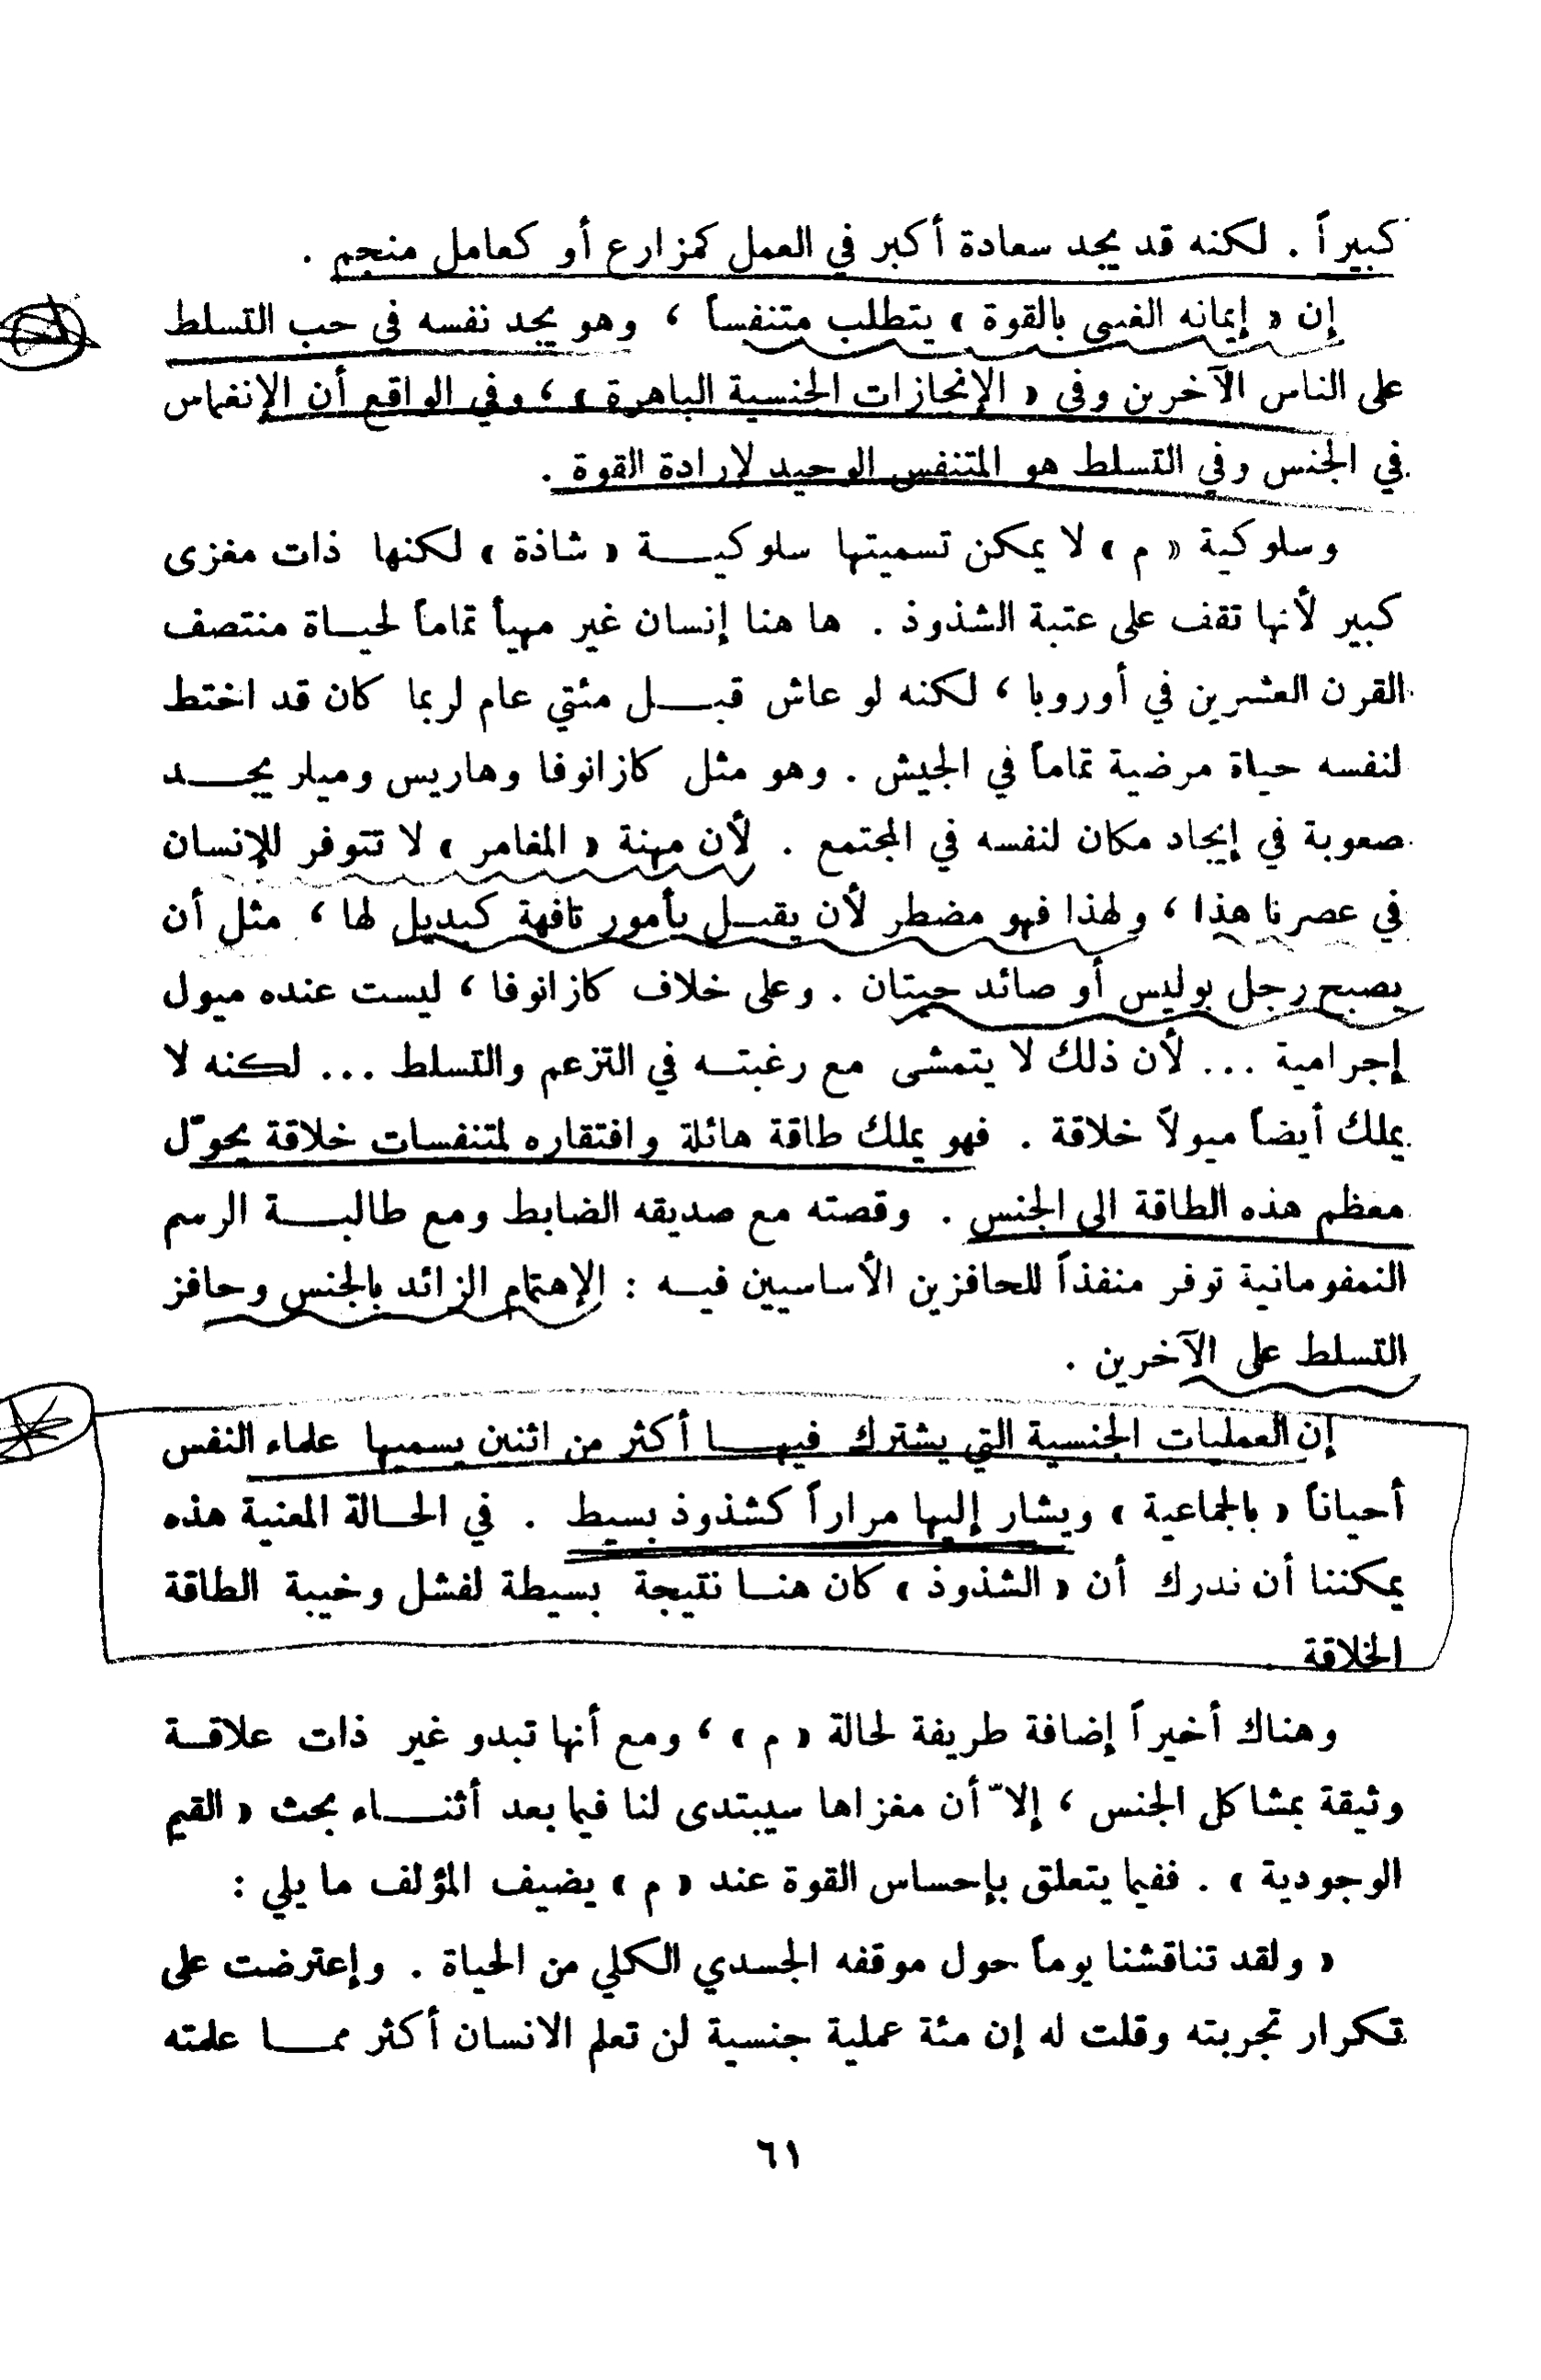 كبيراً . لكنه قد يجد سعادة أكبر في العمل كمزارع أو كعامل منجم .
إن « إيمانه الغبي بالقوة » يتطلب متنفساً ، وهو يجد نفسه في حب التسلط
على الناس الآخرين وفي « الإنجازات الجنسية الباهرة » ، وفي الواقع أن الإنغماس
في الجنس وفي التسلط هو المتنفس الوحيد لإرادة القوة .
وسلوكية « م » لا يمكن تسميتها سلوكيــة « شاذة » لكنها ذات مغزى
كبير لأنها تقف على عتبة الشذوذ . ها هنا إنسان غير مهيأ تماماً لحيــاة منتصف
القرن العشرين في أوروبا ، لكنه لو عاش قبــل مئتي عام لربما كان قد اختط
لنفسه حياة مرضية تماماً في الجيش . وهو مثل كازانوفا وهاريس وميلر يجــد
صعوبة في إيجاد مكان لنفسه في المجتمع . لأن مهنة « المغامر » لا تتوفر للإنسان
في عصرنا هذا ، ولهذا فهو مضطر لأن يقبــل بأمور تافهة كبديل لها ، مثل أن
يصبح رجل بوليس أو صائد حيتان . وعلى خلاف كازانوفا ، ليست عنده ميول
إجرامية ... لأن ذلك لا يتمشى مع رغبتــه في التزعم والتسلط ... لكنه لا
يملك أيضاً ميولاً خلاقة . فهو يملك طاقة هائلة وافتقاره لمتنفسات خلاقة يحوّل
معظم هذه الطاقة الى الجنس . وقصته مع صديقه الضابط ومع طالبــة الرسم
النمفومانية توفر منفذاً للحافزين الأساسيين فيــه : الإهتمام الزائد بالجنس وحافز
التسلط على الآخرين .
إن العمليات الجنسية التي يشترك فيهــا أكثر من اثنين يسميها علماء النفس
أحياناً « بالجماعية » ويشار إليها مراراً كشذوذ بسيط . في الحــالة المعنية هذه
يمكننا أن ندرك أن « الشذوذ » كان هنــا نتيجة بسيطة لفشل وخيبة الطاقة
الخلاقة
وهناك أخيراً إضافة طريفة لحالة « م » ، ومع أنها تبدو غير ذات علاقــة
وثيقة بمشاكل الجنس ، إلاّ أن مغزاها سيبتدى لنا فيما بعد أثنــاء بحث « القيم
الوجودية » . ففيما يتعلق بإحساس القوة عند « م » يضيف المؤلف ما يلي :
« ولقد تناقشنا يوماً حول موقفه الجسدي الكلي من الحياة . وإعترضت على
تكرار تجربته وقلت له إن مئة عملية جنسية لن تعلم الانسان أكثر ممــا علمته
٦١